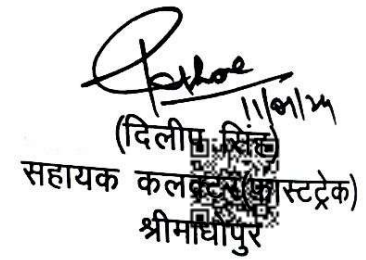 (दिलीप सिंह)
सहायक कलक्टर(फास्टट्रेक)
श्रीमाधोपुर